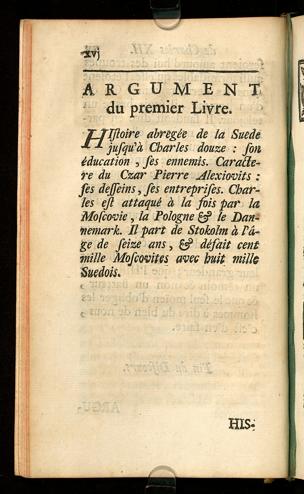 xvj
ARGUMENT
du premier Livre.
HIstoire abregée de la Suede
jusqu'à Charles douze : son
éducation, ses ennemis. Caracte-
re du Czar Pierre Alexiovits :
ses desseins, ses entreprises. Char-
les est attaqué à la fois par la
Moscovie, la Pologne & le Dan-
nemark. Il part de Stokolm à l'â-
ge de seize ans, & défait cent
mille Moscovites avec huit mille
Suedois.
HIS-